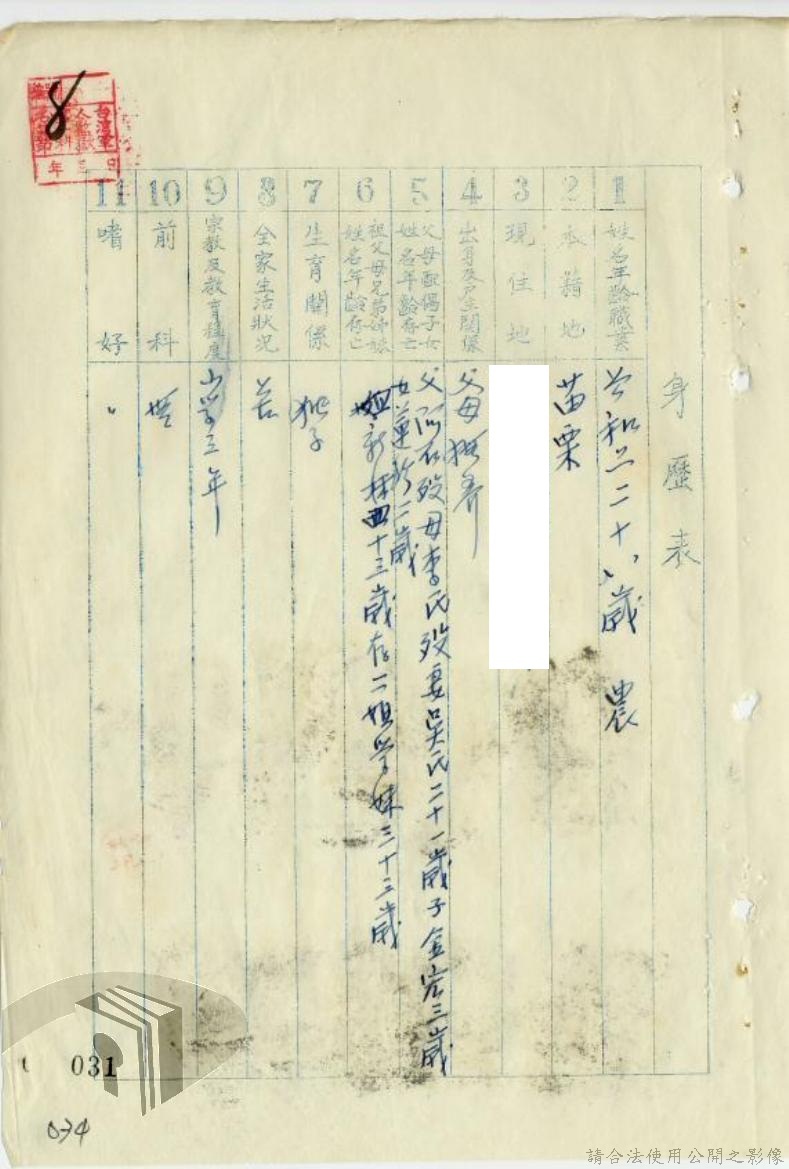 8
身歷表
1
姓名年齡職業
二十八歲 農
2
本籍地
苗栗
3
現住地
4
出身及尸生關係
父母撫養
5
父母配偶子女
姓名年齡存亡
父 石歿母李氏歿妻吳氏二十一歲子金宏三歲
女蓮珍二歲
6
祖父母兄弟姊妹
姓名年齡存亡
新妹四十三歲存二姐學妹三十三歲
7
生育關係
獨子
8
全家生活狀況
苦
9
宗教及教育程度
小学三年
10
前科
無
11
嗜好
〃
031
034
請合法使用公開之影像